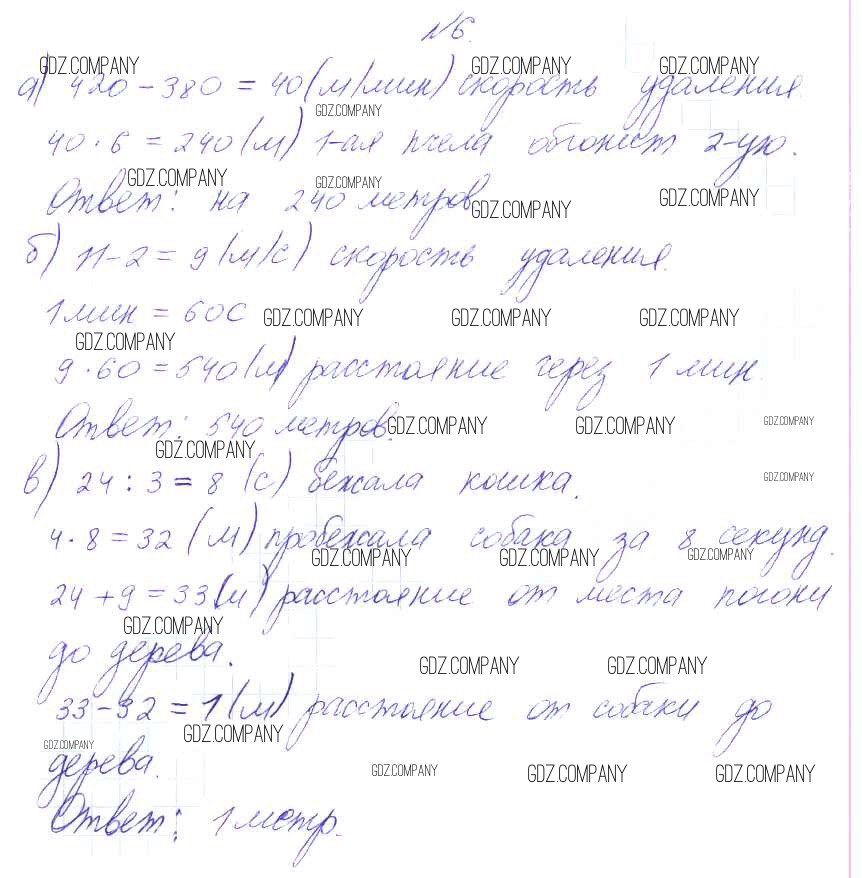 №6.
GDZ.COMPANY GDZ.COMPANY GDZ.COMPANY
а) 420 - 380 = 40 (м/мин) скорость удаления.
GDZ.COMPANY
40 · 6 = 240 (м) 1-ая пчела обгонит 2-ую.
GDZ.COMPANY GDZ.COMPANY GDZ.COMPANY
Ответ: на 240 метров
GDZ.COMPANY
б) 11 - 2 = 9 (м/с) скорость удаления.
1 мин = 60с GDZ.COMPANY GDZ.COMPANY GDZ.COMPANY
GDZ.COMPANY
9 · 60 = 540 (м) расстояние через 1 мин.
Ответ: 540 метров. GDZ.COMPANY GDZ.COMPANY GDZ.COMPANY
GDZ.COMPANY
в) 24 : 3 = 8 (с) бежала кошка. GDZ.COMPANY
4 · 8 = 32 (м) пробежала собака за 8 секунд.
GDZ.COMPANY GDZ.COMPANY GDZ.COMPANY
24 + 9 = 33 (м) расстояние от места погони
GDZ.COMPANY
до дерева.
GDZ.COMPANY GDZ.COMPANY
33 - 32 = 1 (м) расстояние от собаки до
GDZ.COMPANY GDZ.COMPANY
дерева. GDZ.COMPANY GDZ.COMPANY GDZ.COMPANY
Ответ: 1 метр.